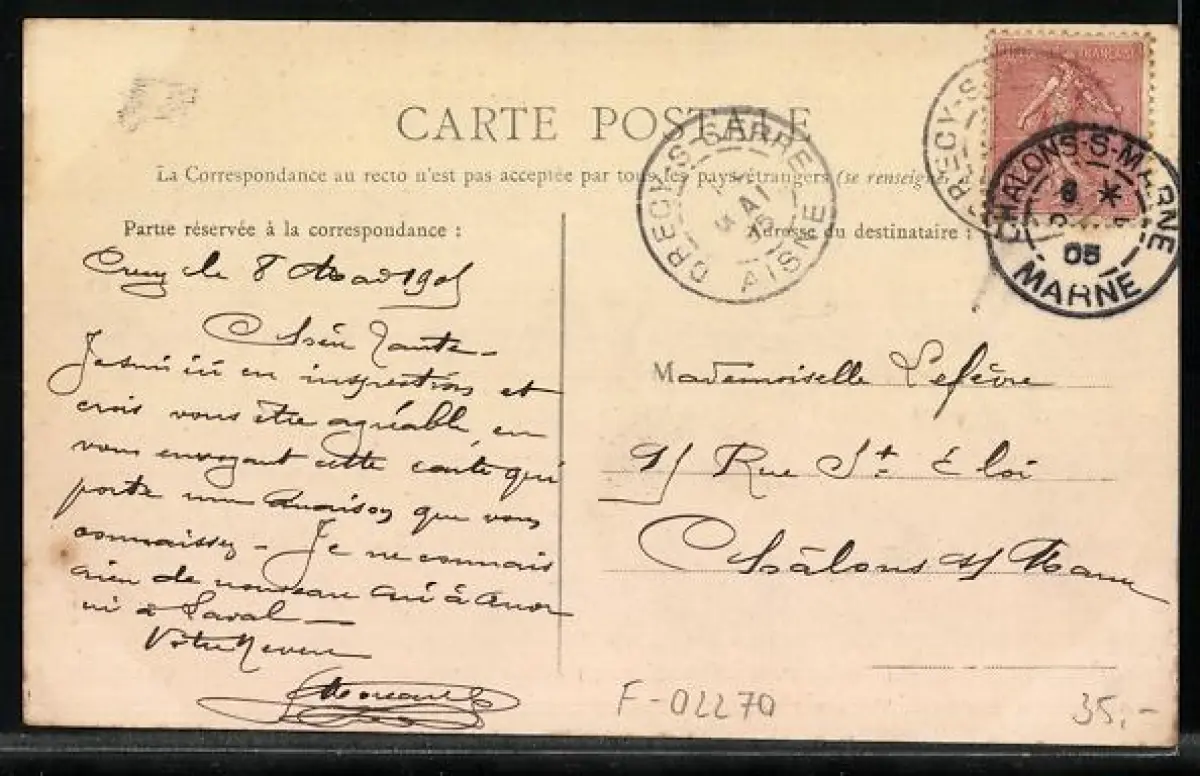 CARTE POSTALE
La Correspondance au recto n'est pas acceptée par tous les pays étrangers (se renseigner
Partie réservée à la correspondance :
Adresse du destinataire :
CRECY-S-SERRE
AISNE
CHALONS-S-MARNE
8 *
05
MARNE
Crecy le 8 Mai 1905
Chère Tante
Je suis ici en inspection et
crois vous être agréable en
vous envoyant cette carte qui
porte une maison que vous
connaissez - Je ne connais
rien de nouveau ni à
ni à Laval -
Votre Neveu
Mademoiselle Lefèvre
9/ Rue St Éloi
Châlons s/ Marne
F-02270
35,-